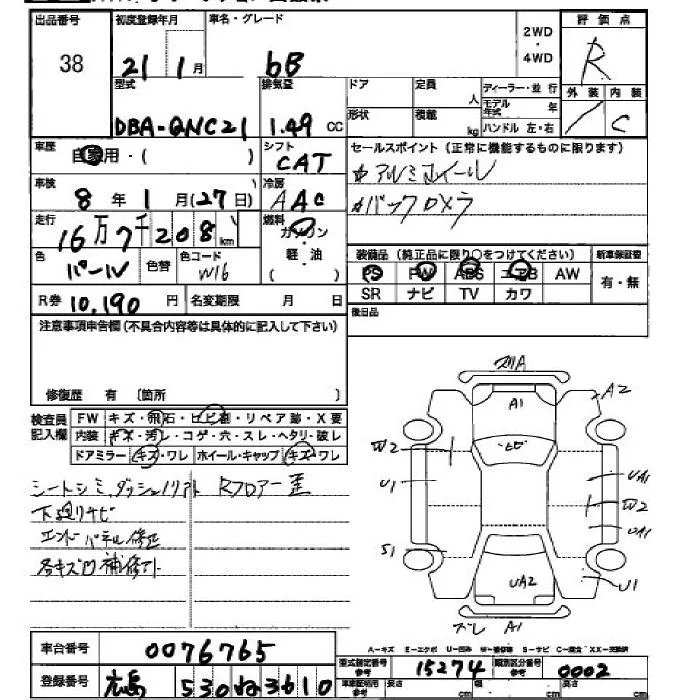 出品番号 初度登録年月 車名・グレード 2WD・4WD 評価点
38 21年1月 bB R
型式 排気量 ドア 定員 人 ディーラー・並行 外装 内装
DBA-QNC21 1.49 CC 形状 積載 kg モデル年式 年 ハンドル 左・右 C
車歴 自家用・( ) シフト CAT セールスポイント (正常に機能するものに限ります)
車検 8年1月(27日) 冷房 AAC アルミホイール
走行 16万7千208km 燃料 ガソリン・軽・油 ( ) バックカメラ
色 パール 色替 色コード W16 装備品 (純正品に限り○をつけてください) 新車保証書
PS PW ABS エアB AW 有・無
R券 10,190円 名変期限 月 日 SR ナビ TV カワ
注意事項申告欄 (不具合内容等は具体的に記入して下さい) 後日品
修復歴 有 〔箇所 〕
検査員記入欄 FW キズ・飛石・ヒビ割・リペア跡・X要
内装 キズ・汚レ・コゲ・穴・スレ・ヘタリ・破レ
ドアミラー キズ・ワレ ホイール・キャップ キズ・ワレ
シートシミ,ダッシュノリアト Rフロアー歪
下廻りサビ
エンドパネル修正
各キズ凹補修アト
A1 A2
W2
U1 UA1
W2
UA1
S1 U1
UA2
ズレ A1
車台番号 0076765
A-キズ E-エクボ U-凹み W-補修跡 S-サビ C-腐食 XX-交換済
登録番号 広島 530 ね 3610 型式指定番号 参考 15274 類別区分番号 参考 0002
車庫証明用 参考 長さ cm 幅 cm 高さ cm